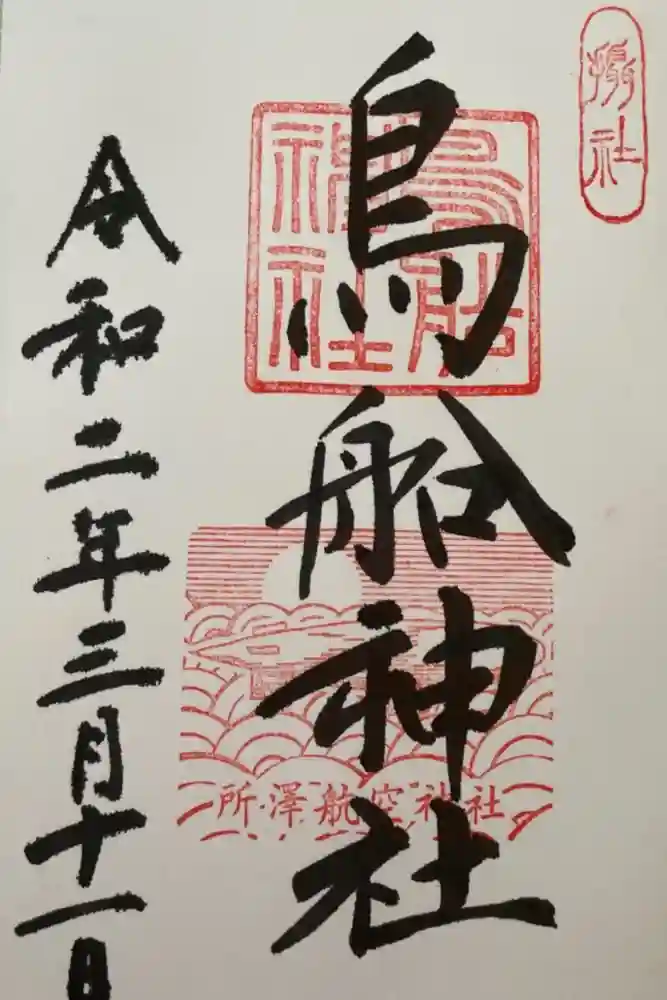 摂社
鳥船神社
鳥船
神社
所澤航空神社
令和二年三月十一日